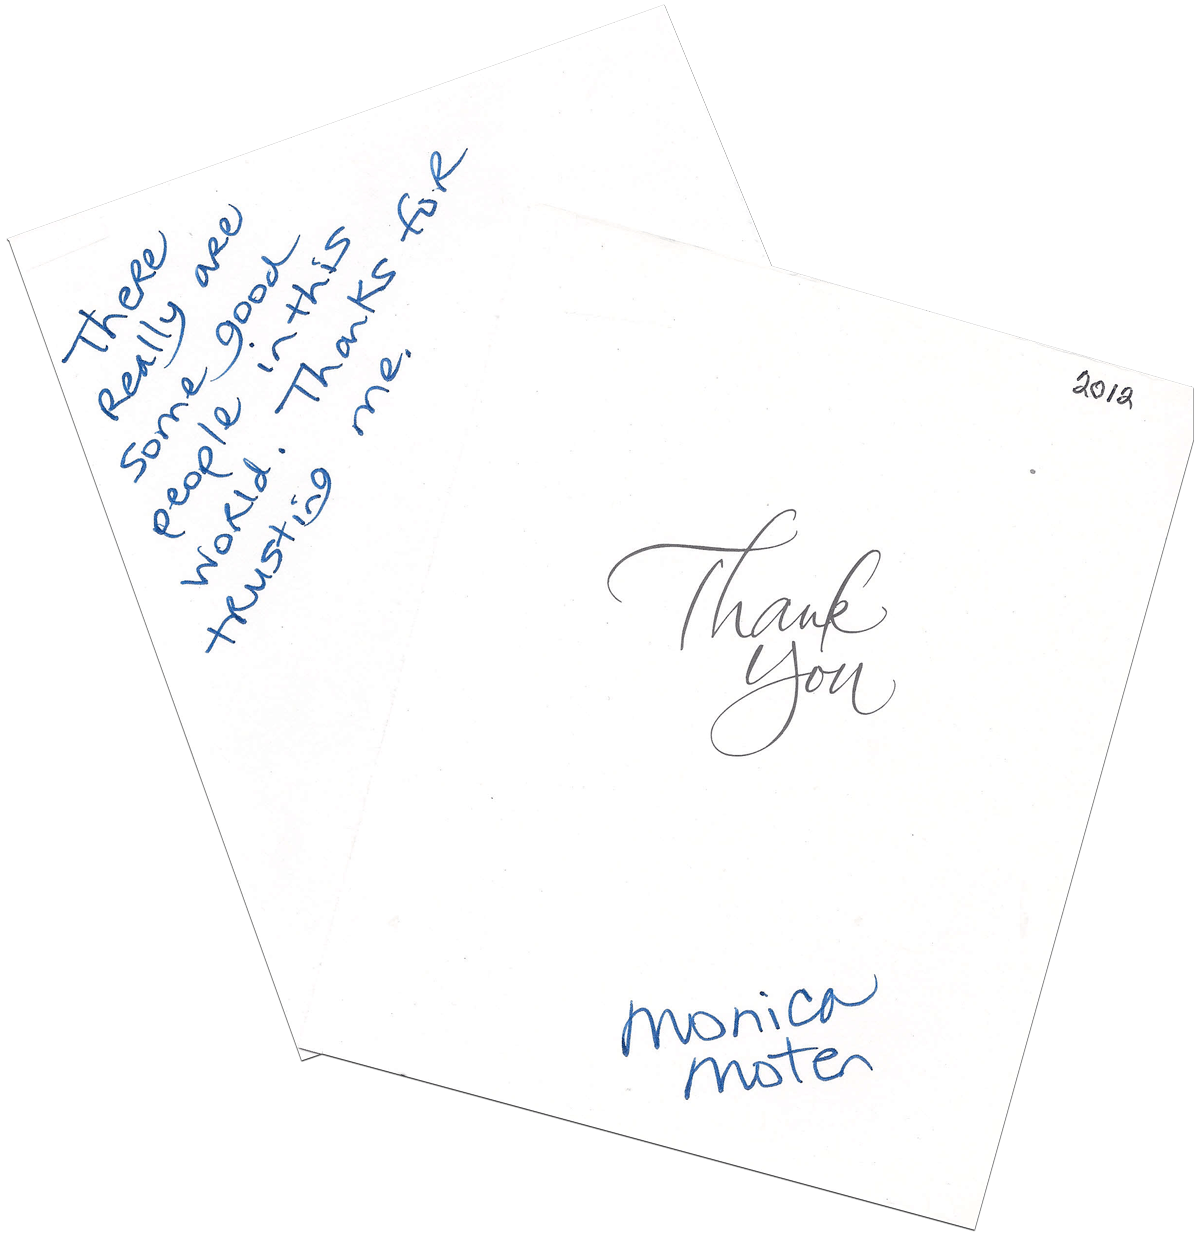 There
Really are
some good
people in this
world. Thanks for
trusting me.
2012
Thank
You
monica
moten